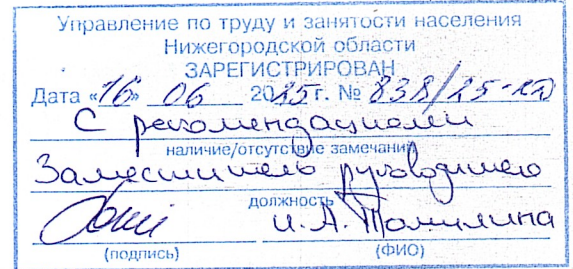 Управление по труду и занятости населения
Нижегородской области
ЗАРЕГИСТРИРОВАН
Дата «16» 06 2025г. № 838/25-КД
С рекомендациями
наличие/отсутствие замечаний
Заместитель руководителя
должность
И.А. Томилина
(подпись) (ФИО)